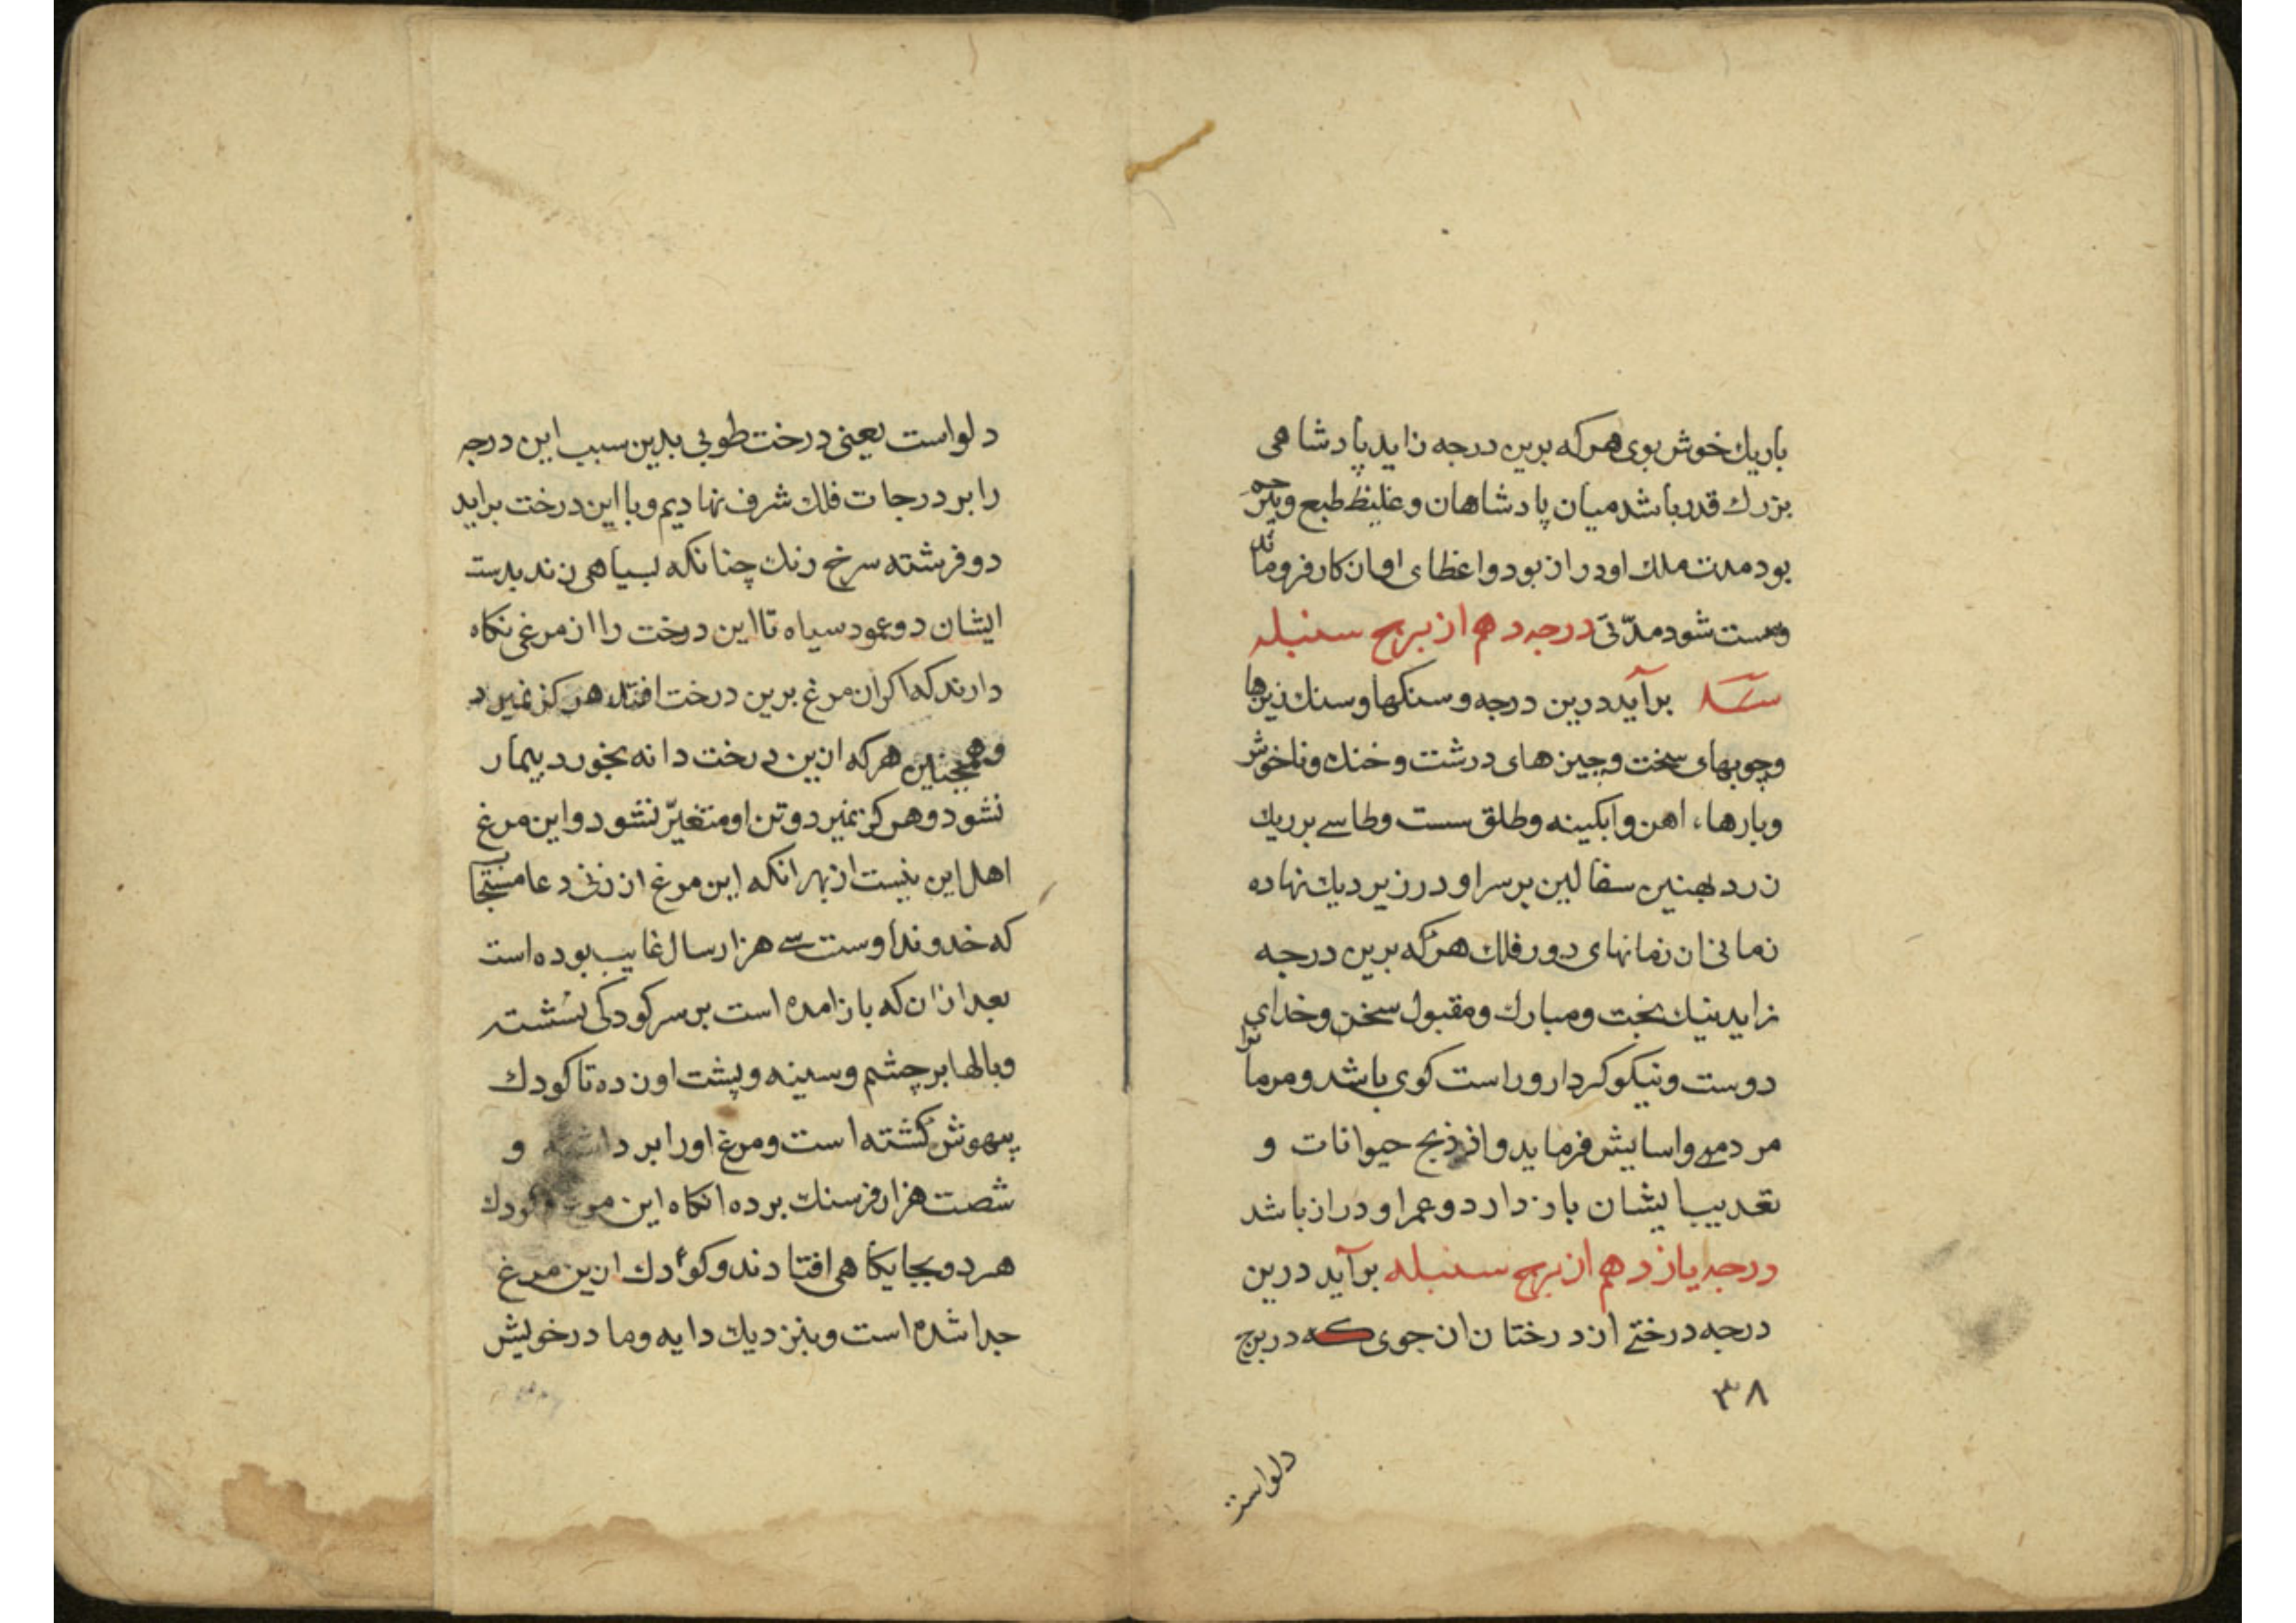 باريك خوش بوى هركه برين درجه زايد پادشاهى
بزرك قدر باشد ميان پادشاهان و غليظ طبع وبيرحم
بود مدت ملك او دراز بود واعظاى او از كار فروماند
وسست شود مدّتى درجه دهم از برج سنبله
برآيد درين درجه و سنكها و سنك ذيرها
وچوبهاى سخت وچيزهاى درشت و خنك وناخوش
وبارهاء اهن وابكينه وطلق سست وطاسے بر ريك
زرد بهنين سفالين بر سر او در زير ديك نهاده
زمانى از زمانهاى دور فلك هركه برين درجه
زايد نيك بخت ومبارك ومقبول سخن وخداى
دوست ونيكو كردار وراست كوى باشد ومر مانرا
مردمے واسايش فرمايد واز ذبح حيوانات و
تعديب ايشان باز دارد وعمر او دراز باشد
درجه يازدهم از برج سنبله برآيد درين
درجه درختے از درختان ان جوى كه در برج
۳۸
دلواست
دلواست يعنى درخت طوبى بدين سبب اين درجه
را بر درجات فلك شرف نهاديم وبا اين درخت برايد
دو فرشته سرخ رنك چنانكه بسياهى زند بدست
ايشان دو عمود سياه تا اين درخت را از مرغى نكاه
دارند كه اكر ان مرغ برين درخت افتد هركز نميرد
وهمچنين هركه ازين درخت دانه بخورد بيمار
نشود وهركز نميرد وتن او متغيّر نشود واين مرغ
اهل اين نيست از بهر انكه اين مرغ از زنى دعا مستجاب
كه خداوند اوست سے هزار سال غايب بوده است
بعد از ان كه باز امده است بر سر كودكى نشسته
وبالها بر چشم وسينه وپشت او زده تا كودك
بيهوش كشته است ومرغ او را بر داشته و
شصت هزار فرسنك برده انكاه اين مرغ وكودك
هردو بجايكاهى افتادند وكودك ازين مرغ
جدا شده است وبنزديك دايه وما درخويش